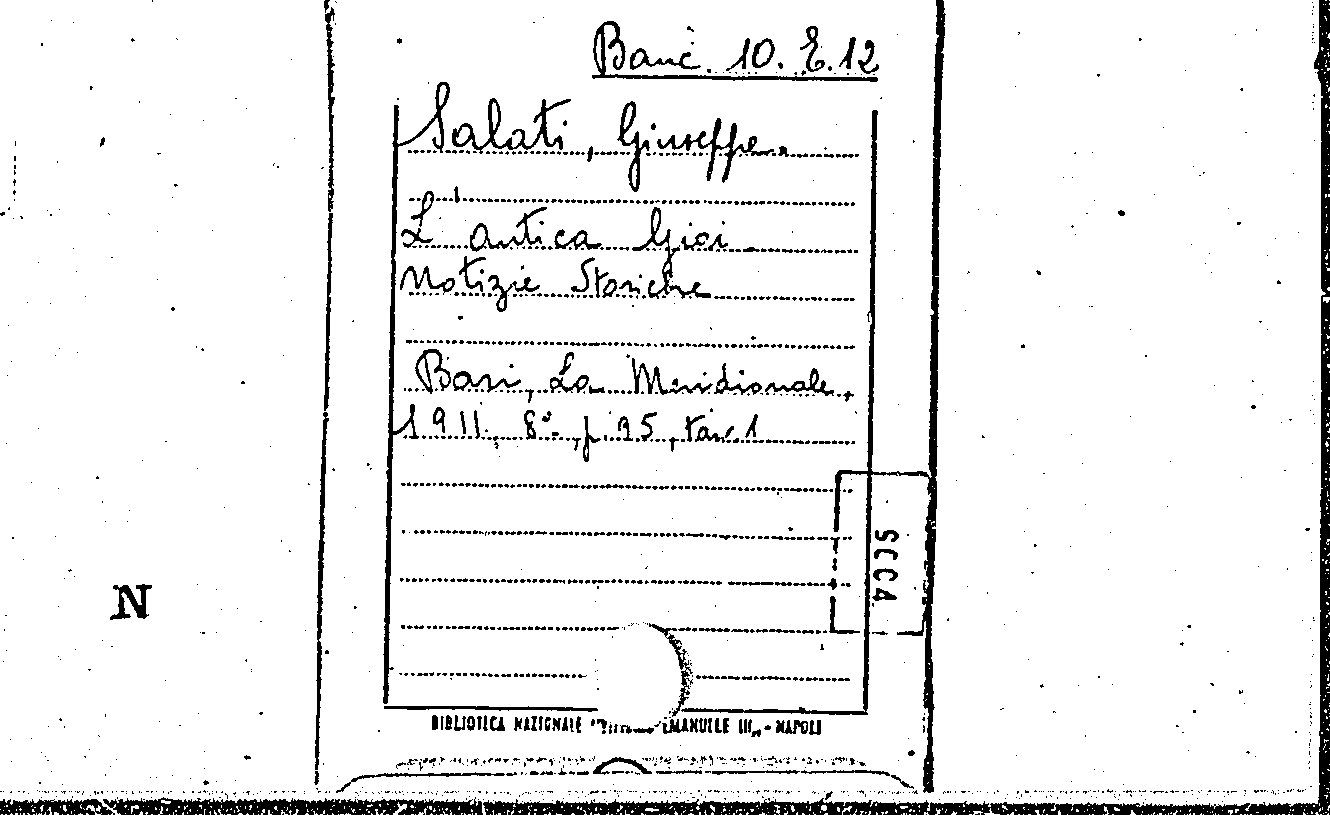 Banc. 10. E. 12
Salati, Giuseppe.
L'antica Gioi
Notizie Storiche
Bari, La Meridionale,
1911, 8°, p. 95, tav. 1
SCCA
N
BIBLIOTECA NAZIONALE " EMANUELE III„ - NAPOLI